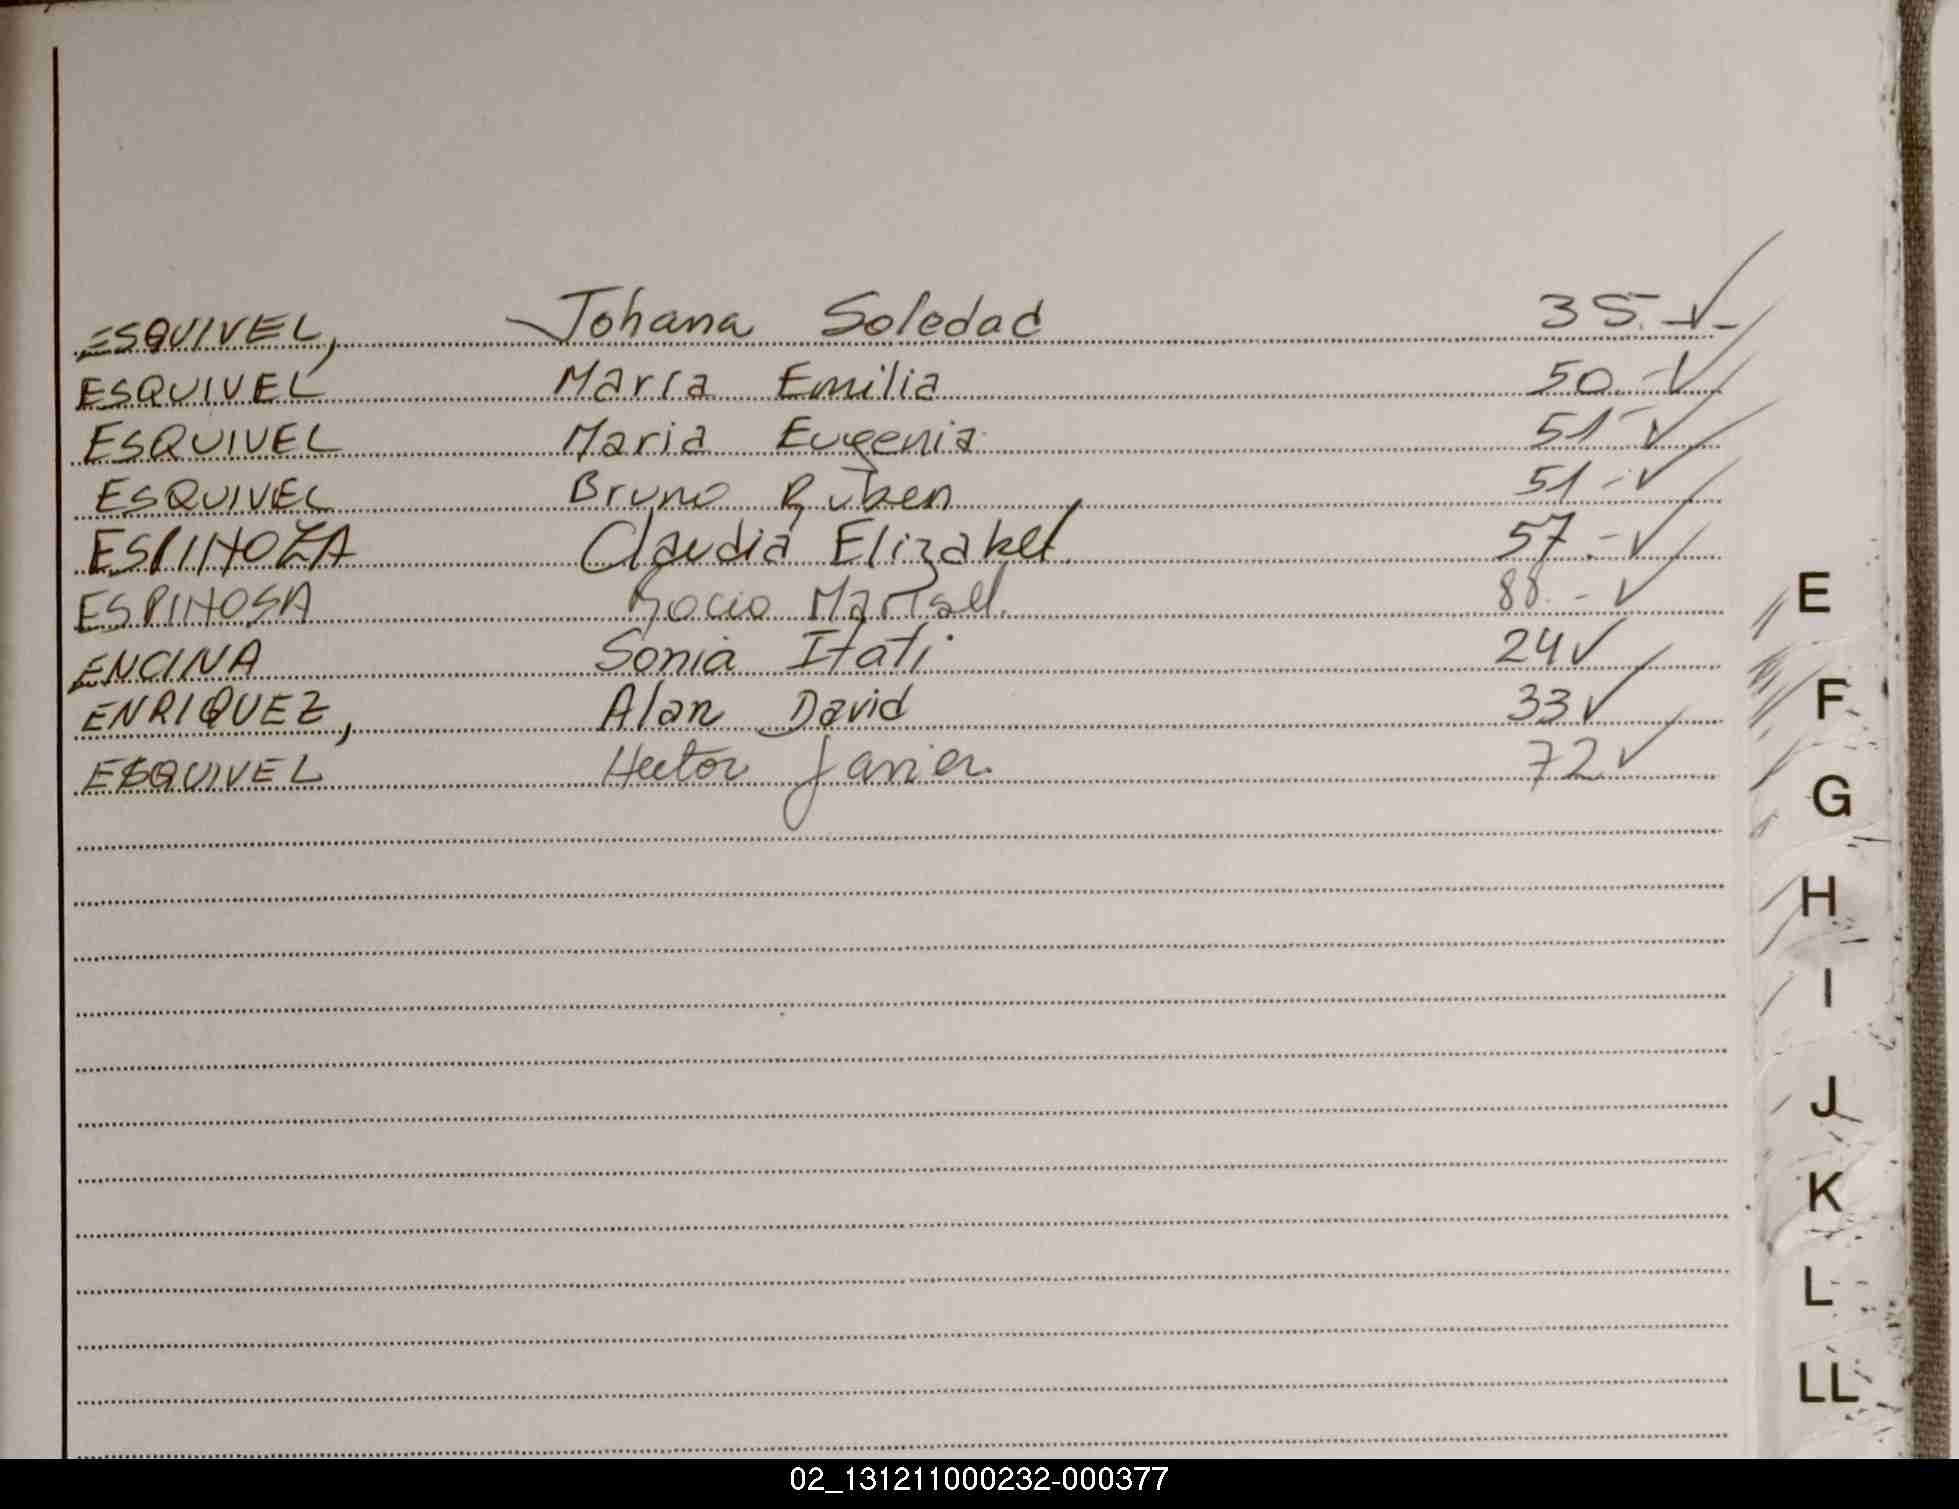 ESQUIVEL, Johana Soledad 35.-✓-
ESQUIVEL María Emilia 50.-✓
ESQUIVEL Maria Eugenia 51-✓
ESQUIVEL Bruno Ruben 51.-✓
ESPINOZA Claudia Elizabet. 57.-✓
ESPINOSA Rocio Marisel. 88.-✓
ENCINA Sonia Itati 24✓
ENRIQUEZ, Alan David 33✓
ESQUIVEL Hector Javier. 72✓
E
F
G
H
I
J
K
L
LL
02_131211000232-000377